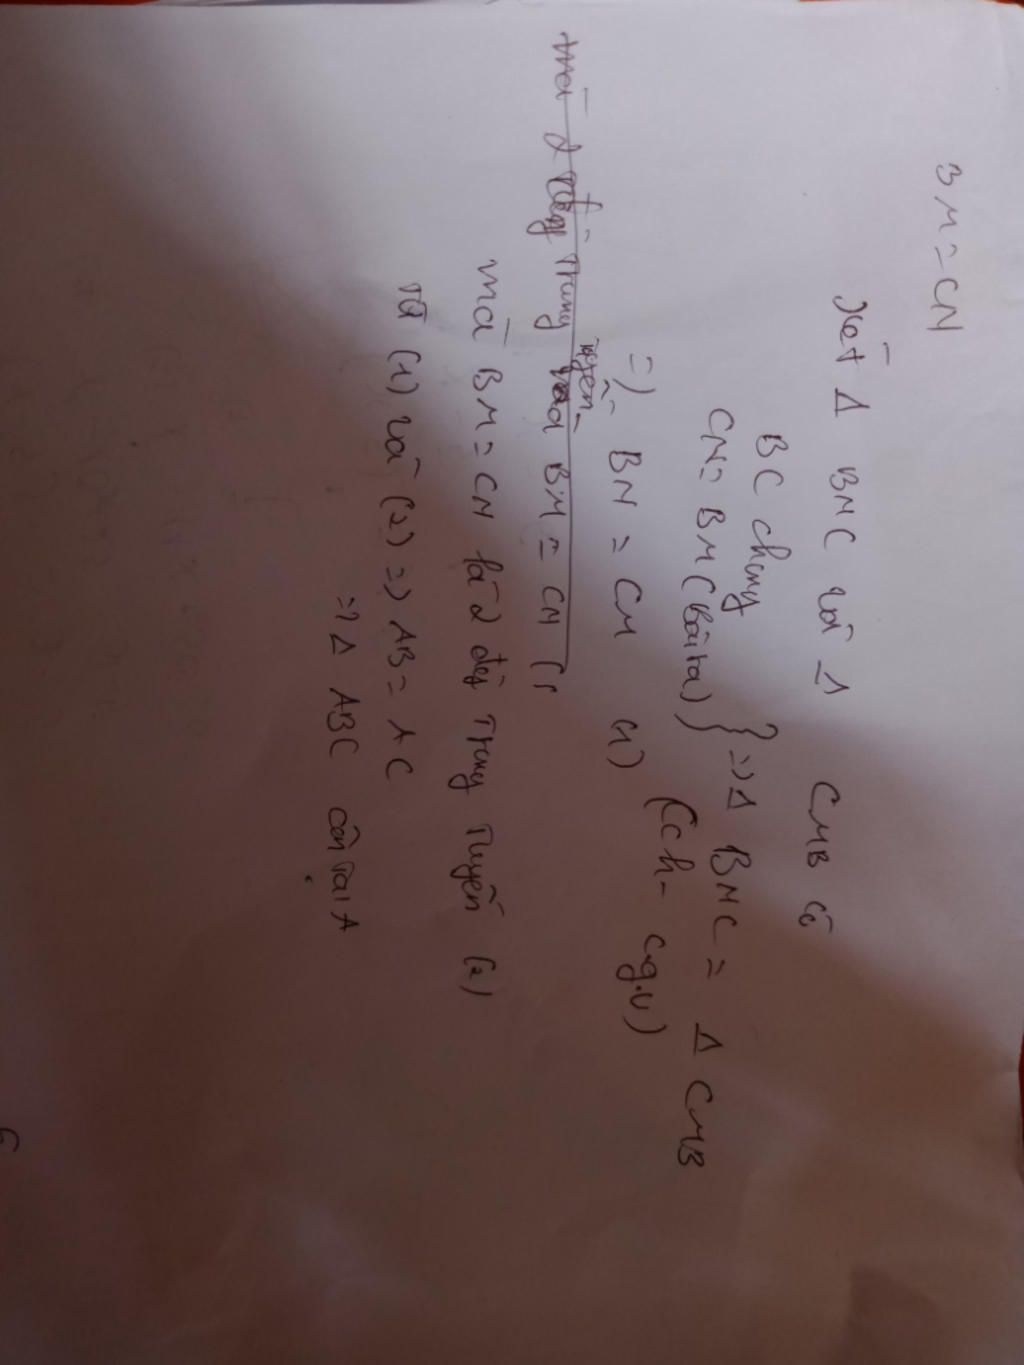 BM = CN
Xét Δ BNC và Δ CMB có
BC chung
CN = BM (bài ra) } => Δ BNC = Δ CMB
(ch - cgv)
=> BN = CM (1)
mà 2 trung tuyến BM = CN (
mà BM = CN là 2 đg trung tuyến (2)
Từ (1) và (2) => AB = AC
=> Δ ABC cân tại A